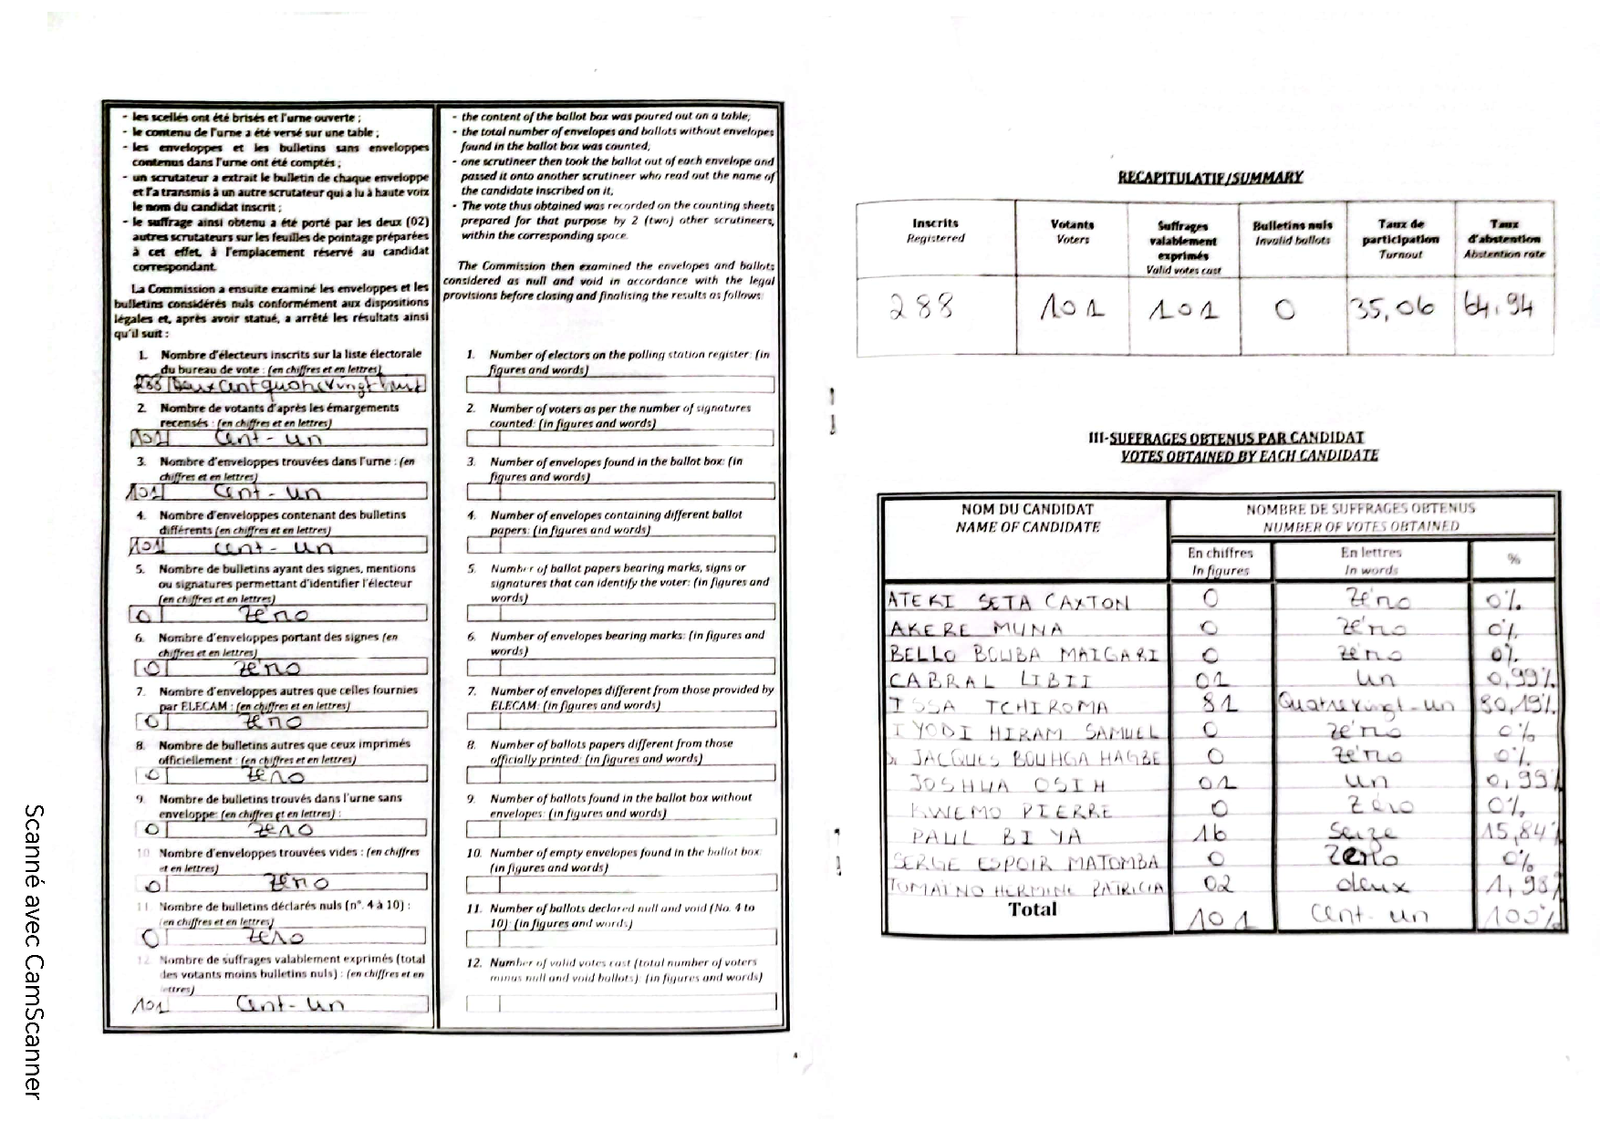 - les scellés ont été brisés et l'urne ouverte ;
- le contenu de l'urne a été versé sur une table ;
- les enveloppes et les bulletins sans enveloppes
contenus dans l'urne ont été comptés ;
- un scrutateur a extrait le bulletin de chaque enveloppe
et l'a transmis à un autre scrutateur qui a lu à haute voix
le nom du candidat inscrit ;
- le suffrage ainsi obtenu a été porté par les deux (02)
autres scrutateurs sur les feuilles de pointage préparées
à cet effet, à l'emplacement réservé au candidat
correspondant.
La Commission a ensuite examiné les enveloppes et les
bulletins considérés nuls conformément aux dispositions
légales et, après avoir statué, a arrêté les résultats ainsi
qu'il suit :
1. Nombre d'électeurs inscrits sur la liste électorale
du bureau de vote : (en chiffres et en lettres)
288 Deux cent quatre vingt huit
2. Nombre de votants d'après les émargements
recensés : (en chiffres et en lettres)
101 cent-un
3. Nombre d'enveloppes trouvées dans l'urne : (en
chiffres et en lettres)
101 cent-un
4. Nombre d'enveloppes contenant des bulletins
différents (en chiffres et en lettres)
101 cent-un
5. Nombre de bulletins ayant des signes, mentions
ou signatures permettant d'identifier l'électeur
(en chiffres et en lettres)
0 zéro
6. Nombre d'enveloppes portant des signes (en
chiffres et en lettres)
0 zéro
7. Nombre d'enveloppes autres que celles fournies
par ELECAM : (en chiffres et en lettres)
0 zéro
8. Nombre de bulletins autres que ceux imprimés
officiellement : (en chiffres et en lettres)
0 zéro
9. Nombre de bulletins trouvés dans l'urne sans
enveloppe: (en chiffres et en lettres) :
0 zéro
10. Nombre d'enveloppes trouvées vides : (en chiffres
et en lettres)
0 zéro
11. Nombre de bulletins déclarés nuls (n°. 4 à 10) :
(en chiffres et en lettres)
0 zéro
12. Nombre de suffrages valablement exprimés (total
des votants moins bulletins nuls) : (en chiffres et en
lettres)
101 cent-un
- the content of the ballot box was poured out on a table;
- the total number of envelopes and ballots without envelopes
found in the ballot box was counted;
- one scrutineer then took the ballot out of each envelope and
passed it onto another scrutineer who read out the name of
the candidate inscribed on it.
- The vote thus obtained was recorded on the counting sheets
prepared for that purpose by 2 (two) other scrutineers,
within the corresponding space.
The Commission then examined the envelopes and ballots
considered as null and void in accordance with the legal
provisions before closing and finalising the results as follows:
1. Number of electors on the polling station register: (in
figures and words)
2. Number of voters as per the number of signatures
counted: (in figures and words)
3. Number of envelopes found in the ballot box: (in
figures and words)
4. Number of envelopes containing different ballot
papers: (in figures and words)
5. Number of ballot papers bearing marks, signs or
signatures that can identify the voter: (in figures and
words)
6. Number of envelopes bearing marks: (in figures and
words)
7. Number of envelopes different from those provided by
ELECAM: (in figures and words)
8. Number of ballots papers different from those
officially printed: (in figures and words)
9. Number of ballots found in the ballot box without
envelopes: (in figures and words)
10. Number of empty envelopes found in the ballot box:
(in figures and words)
11. Number of ballots declared null and void (No. 4 to
10) (in figures and words)
12. Number of valid votes cast (total number of voters
minus null and void ballots) (in figures and words)
4
RECAPITULATIF/SUMMARY
Inscrits Registered
Votants Voters
Suffrages valablement exprimés Valid votes cast
Bulletins nuls Invalid ballots
Taux de participation Turnout
Taux d'abstention Abstention rate
288 101 101 0 35,06 64,94
III-SUFFRAGES OBTENUS PAR CANDIDAT
VOTES OBTAINED BY EACH CANDIDATE
NOM DU CANDIDAT
NAME OF CANDIDATE
NOMBRE DE SUFFRAGES OBTENUS
NUMBER OF VOTES OBTAINED
En chiffres In figures
En lettres In words
%
ATEKI SETA CAXTON 0 zéro 0%
AKERE MUNA 0 zéro 0%
BELLO BOUBA MAIGARI 0 zéro 0%
CABRAL LIBII 01 un 0,99%
ISSA TCHIROMA 81 Quatre vingt-un 80,19%
IYODI HIRAM SAMUEL 0 zéro 0%
JACQUES BOUHGA HAGBE 0 zéro 0%
JOSHUA OSIH 01 un 0,99%
KWEMO PIERRE 0 zéro 0%
PAUL BIYA 16 Seize 15,84%
SERGE ESPOIR MATOMBA 0 Zero 0%
TOMAINO HERMINE PATRICIA 02 deux 1,98%
Total 101 cent-un 100%
Scanné avec CamScanner